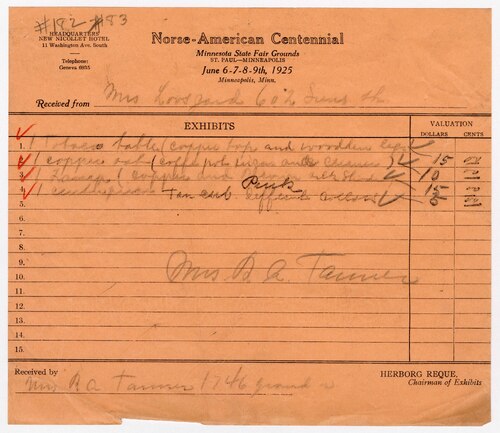 #182 #83
HEADQUARTERS
NEW NICOLLET HOTEL
11 Washington Ave. South
Telephone:
Geneva 6835
Norse-American Centennial
Minnesota State Fair Grounds
ST. PAUL—MINNEAPOLIS
June 6-7-8-9th, 1925
Minneapolis, Minn.
Received from Mrs
EXHIBITS
VALUATION
DOLLARS CENTS
1. 1 Tobaco table (copper top and woodden legs
2. 1 copper set (coffe pot sugar and 15
3. 1 copper and 10
4. 1 Tan and Pink 15
5.
6.
7.
8.
9.
10. Mrs B A Tanner
11.
12.
13.
14.
15.
Received by
Mrs B A Tanner 1746
HERBORG REQUE,
Chairman of Exhibits